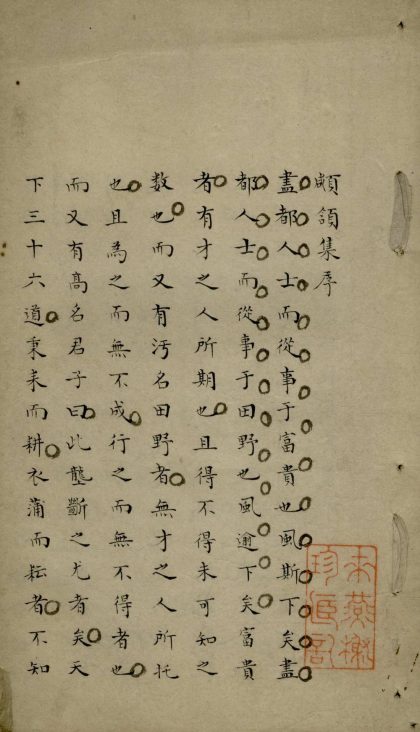 頷集序
盡都人士而從事于富貴也風斯下矣盡
都人士而從事于田野也風邇下矣富貴
者有才之人所期也且得不得未可知之
数也而又有汚名田野者無才之人所托
也且為之而無不成行之而無不得者也
而又有高名君子曰此壟斷之尤者矣天
下三十六道秉耒而耕衣蒲而耘者不知